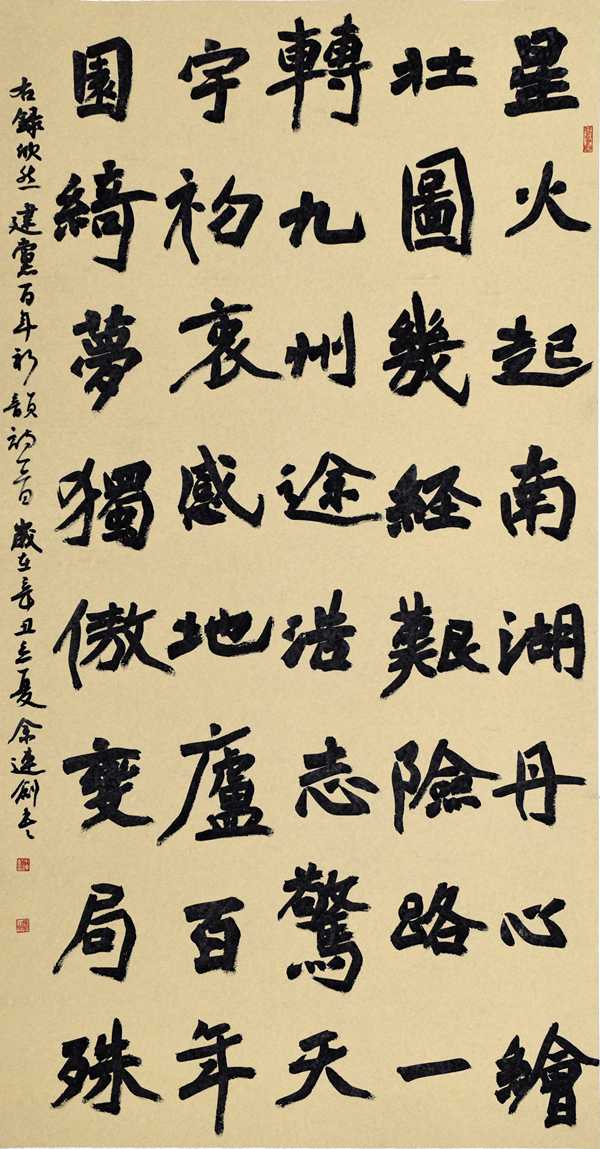 星火起南湖丹心繪
壯圖幾經艱險路一
轉九州途浩志驚天
宇初衷感地廬百年
園綺夢獨傲變局殊
右錄欣然建黨百年新韻詩一首歲在辛丑夏余